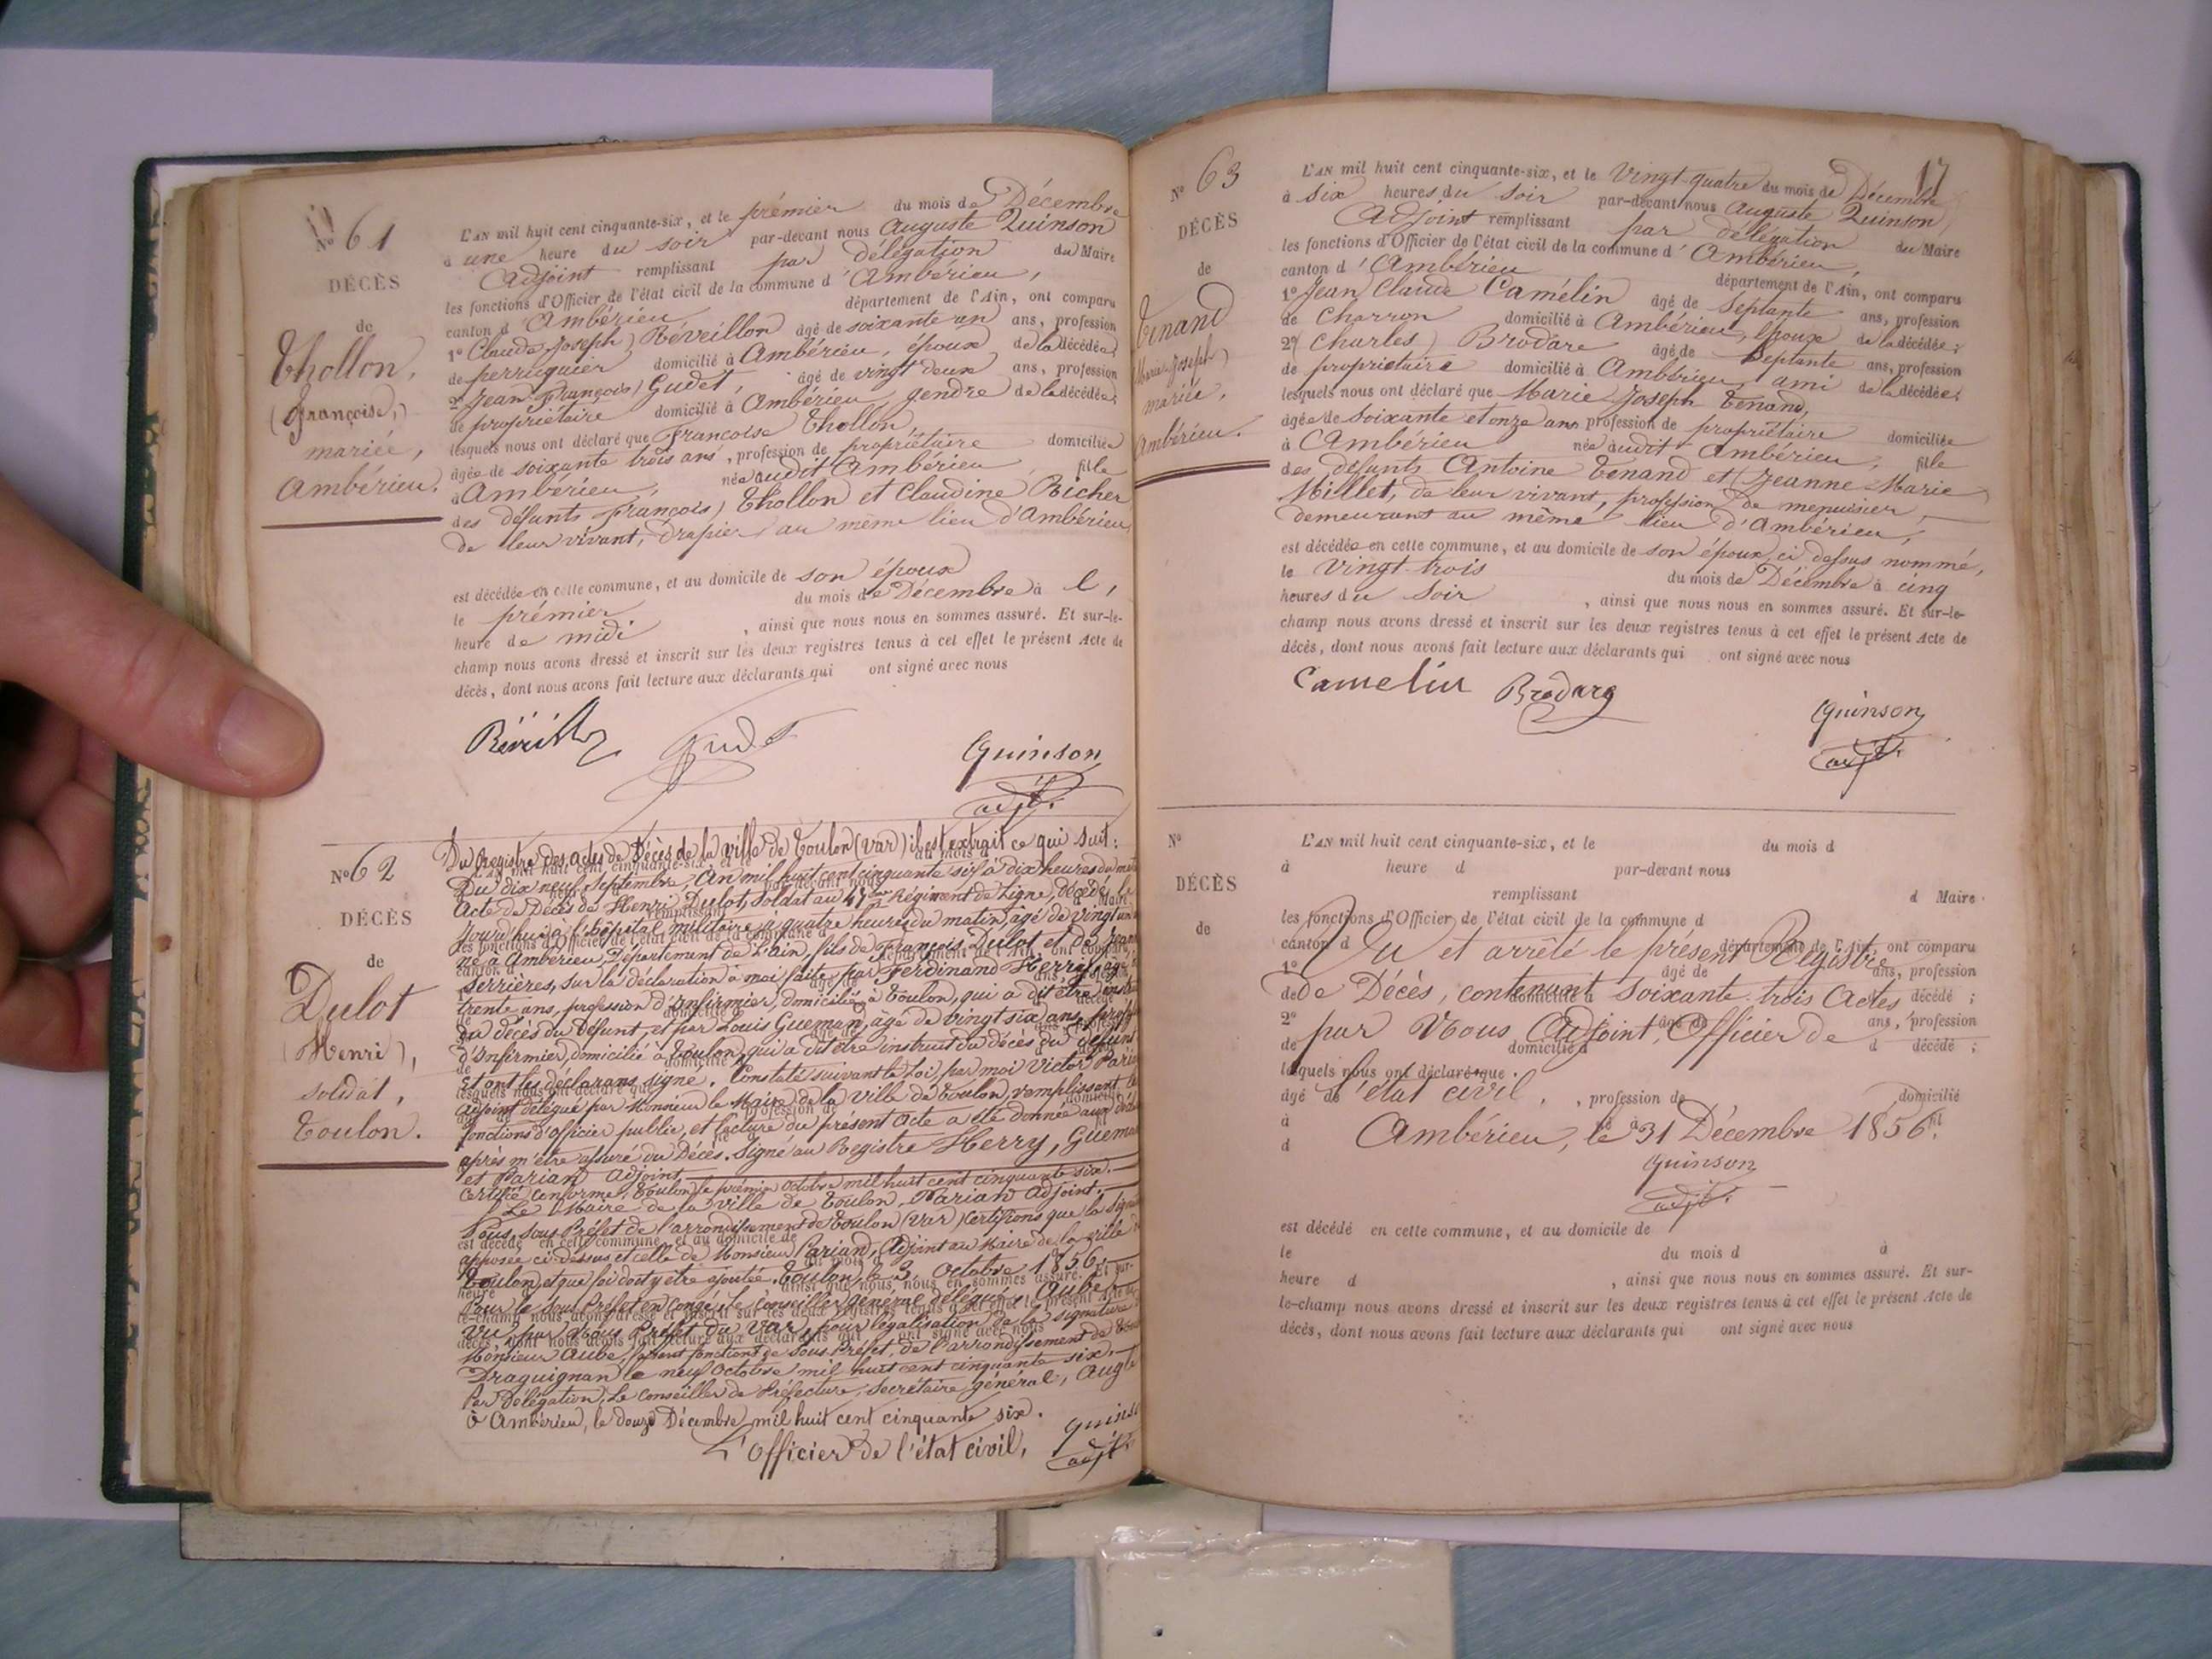 N° 61
DÉCÈS
de
Thollon,
(Françoise,)
mariée,
Ambérieu.
L'AN mil huit cent cinquante-six, et le prémier du mois de Décembre
à une heure du soir par-devant nous Auguste Quinson
Adjoint remplissant par délégation du Maire
les fonctions d'Officier de l'état civil de la commune d'Ambérieu,
canton d'Ambérieu département de l'Ain, ont comparu
1° Claude Joseph Réveillon âgé de soixante un ans, profession
de perruquier domicilié à Ambérieu, époux de la décédée;
2° Jean François Gudet, âgé de vingt deux ans, profession
de propriétaire domicilié à Ambérieu, gendre de la décédée;
lesquels nous ont déclaré que Françoise Thollon,
âgée de soixante trois ans, profession de propriétaire domiciliée
à Ambérieu, née audit Ambérieu, fille
des défunts François Thollon et Claudine Richer
de leur vivant, drapier au même lieu d'Ambérieu,
est décédée en cette commune, et au domicile de son époux
le prémier du mois de Décembre à l,
heure de midi, ainsi que nous nous en sommes assuré. Et sur-le-
champ nous avons dressé et inscrit sur les deux registres tenus à cet effet le présent Acte de
décès, dont nous avons fait lecture aux déclarants qui ont signé avec nous
Quinson
adjt.
N° 62
DÉCÈS
de
Dulot
(Henri),
soldat,
Toulon.
Du Registre des actes de Décès de la ville de Toulon (Var) il est extrait ce qui suit:
Du dix neuf Septembre, An mil huit cent cinquante six à dix heures du
Acte de Décès de Henri Dulot, soldat au Régiment de Ligne, décédé le
jourd'hui à l'hôpital militaire à quatre heures du matin, âgé de vingt un
né à Ambérieu, Département de l'Ain, fils de François Dulot et de Jeanne
Serrières, sur la déclaration à moi faite par Ferdinand Herry, âgé
trente ans, profession d'Infirmier, domicilié à Toulon, qui a dit être
du décès du défunt, et par Louis Gueman, âgé de vingt six ans,
d'Infirmier, domicilié à Toulon, qui a dit être instruit du décès du défunt
et ont les déclarans signé. Constaté suivant la Loi, par moi Victor
adjoint délégué par Monsieur le Maire de la ville de Toulon, remplissant les
fonctions d'officier public, et lecture du présent acte a été donnée aux
après m'être assuré du Décès. Signé au Registre Herry, Gueman
et Parian adjoint
Certifié conforme, Toulon le prémier octobre mil huit cent cinquante six.
Le Maire de la ville de Toulon, Parian adjoint.
Nous, sous Préfet de l'arrondissement de Toulon (Var) Certifions que la
apposée ci-dessus est celle de Monsieur Parian, Adjoint au Maire de la ville
Toulon, et que foi doit y être ajoutée. Toulon, le 3 Octobre 1856.
Pour le Sous Préfet en congé, le Conseiller général délégué, Aube
Vu par Nous Préfet du Var, pour légalisation de la signature
Monsieur Aube, fonctions de sous Préfet, de l'arrondissement de
Draguignan le neuf Octobre mil huit cent cinquante six.
Par Délégation, Le Conseiller de Préfecture, Secrétaire général,
à Ambérieu, le douze Décembre mil huit cent cinquante six.
L'officier de l'état civil,
adjt.
17
N° 63
DÉCÈS
de
Tenand
Marie Joseph
mariée,
Ambérieu.
L'AN mil huit cent cinquante-six, et le Vingt-quatre du mois de Décembre
à six heures du soir par-devant nous Auguste Quinson
Adjoint remplissant par délégation du Maire
les fonctions d'Officier de l'état civil de la commune d'Ambérieu,
canton d'Ambérieu département de l'Ain, ont comparu
1° Jean Claude Camélin âgé de Septante ans, profession
de Charron domicilié à Ambérieu, époux de la décédée;
2° Charles Brodare âgé de Septante ans, profession
de propriétaire domicilié à Ambérieu, ami de la décédée;
lesquels nous ont déclaré que Marie Joseph Tenand,
âgée de soixante et onze ans profession de propriétaire domiciliée
à Ambérieu née audit Ambérieu, fille
des défunts Antoine Tenand et Jeanne Marie
Millet, de leur vivant, profession de menuisier
demeurant au même lieu d'Ambérieu,
est décédée en cette commune, et au domicile de son époux, ci dessus nommé,
le vingt-trois du mois de Décembre à cinq
heures du soir, ainsi que nous nous en sommes assuré. Et sur-le-
champ nous avons dressé et inscrit sur les deux registres tenus à cet effet le présent Acte de
décès, dont nous avons fait lecture aux déclarants qui ont signé avec nous
Camelin Brodare
Quinson
adjt.
N°
DÉCÈS
de
L'AN mil huit cent cinquante-six, et le du mois d
à heure d par-devant nous
remplissant d Maire
les fonctions d'Officier de l'état civil de la commune d
canton d département de l'Ain, ont comparu
Vu et arrêté le présent Registre
1° âgé de ans, profession
de Décès, contenant soixante-trois Actes
de domicilié à décédé ;
2° âgé de ans, profession
par Nous Adjoint, Officier de
de domicilié à d décédé ;
lesquels nous ont déclaré que
l'état civil.
âgé de , profession de domicilié
Ambérieu, le 31 Décembre 1856.
Quinson
adjt.
est décédé en cette commune, et au domicile de
le du mois d à
heure d , ainsi que nous nous en sommes assuré. Et sur-
le-champ nous avons dressé et inscrit sur les deux registres tenus à cet effet le présent Acte de
décès, dont nous avons fait lecture aux déclarants qui ont signé avec nous